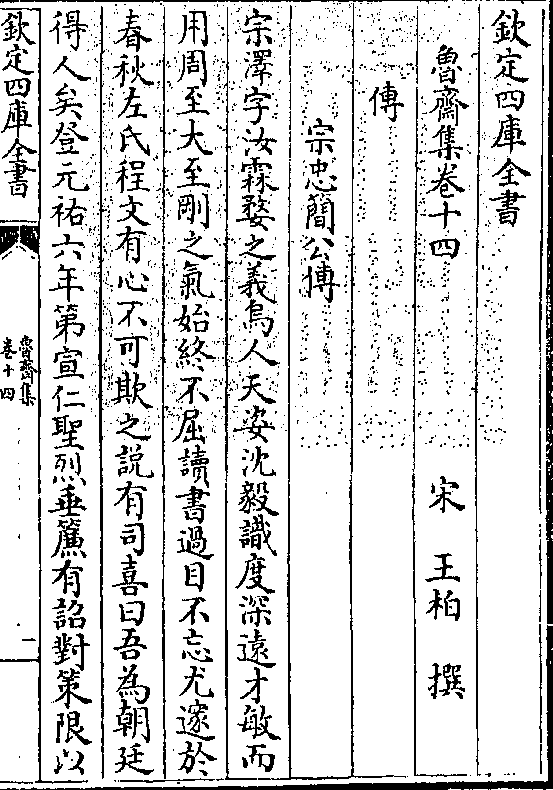 欽定四庫全書
魯齋集卷十四
宋 王柏 撰
傳
宗忠簡公傳
宗澤字汝霖婺之義烏人天姿沈毅識度深遠才敏而
用周至大至剛之氣始終不屈讀書過目不忘尤邃於
春秋左氏程文有心不可欺之說有司喜曰吾為朝廷
得人矣登元祐六年第宣仁聖烈垂簾有詔對策限以
欽定四庫全書
魯齋集
卷十四
一